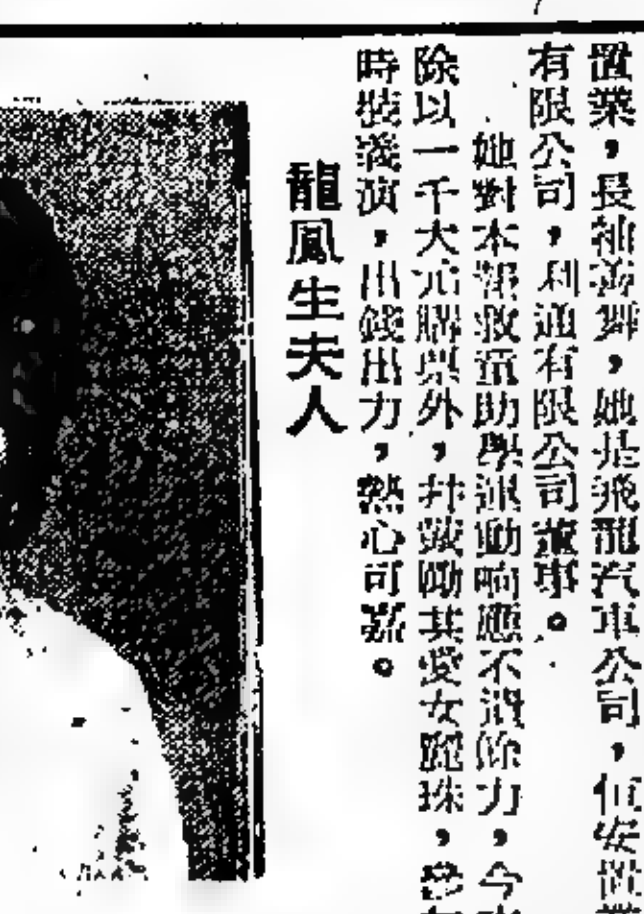 置業，長袖善舞，她是飛龍汽車公司，恒安置
有限公司，利通有限公司董事。
她對本報救童助學運動响應不遺餘力，今
除以一千大元購票外，并鼓勵其愛女麗珠，參
時裝義演，出錢出力，熱心可嘉。
龍鳳生夫人